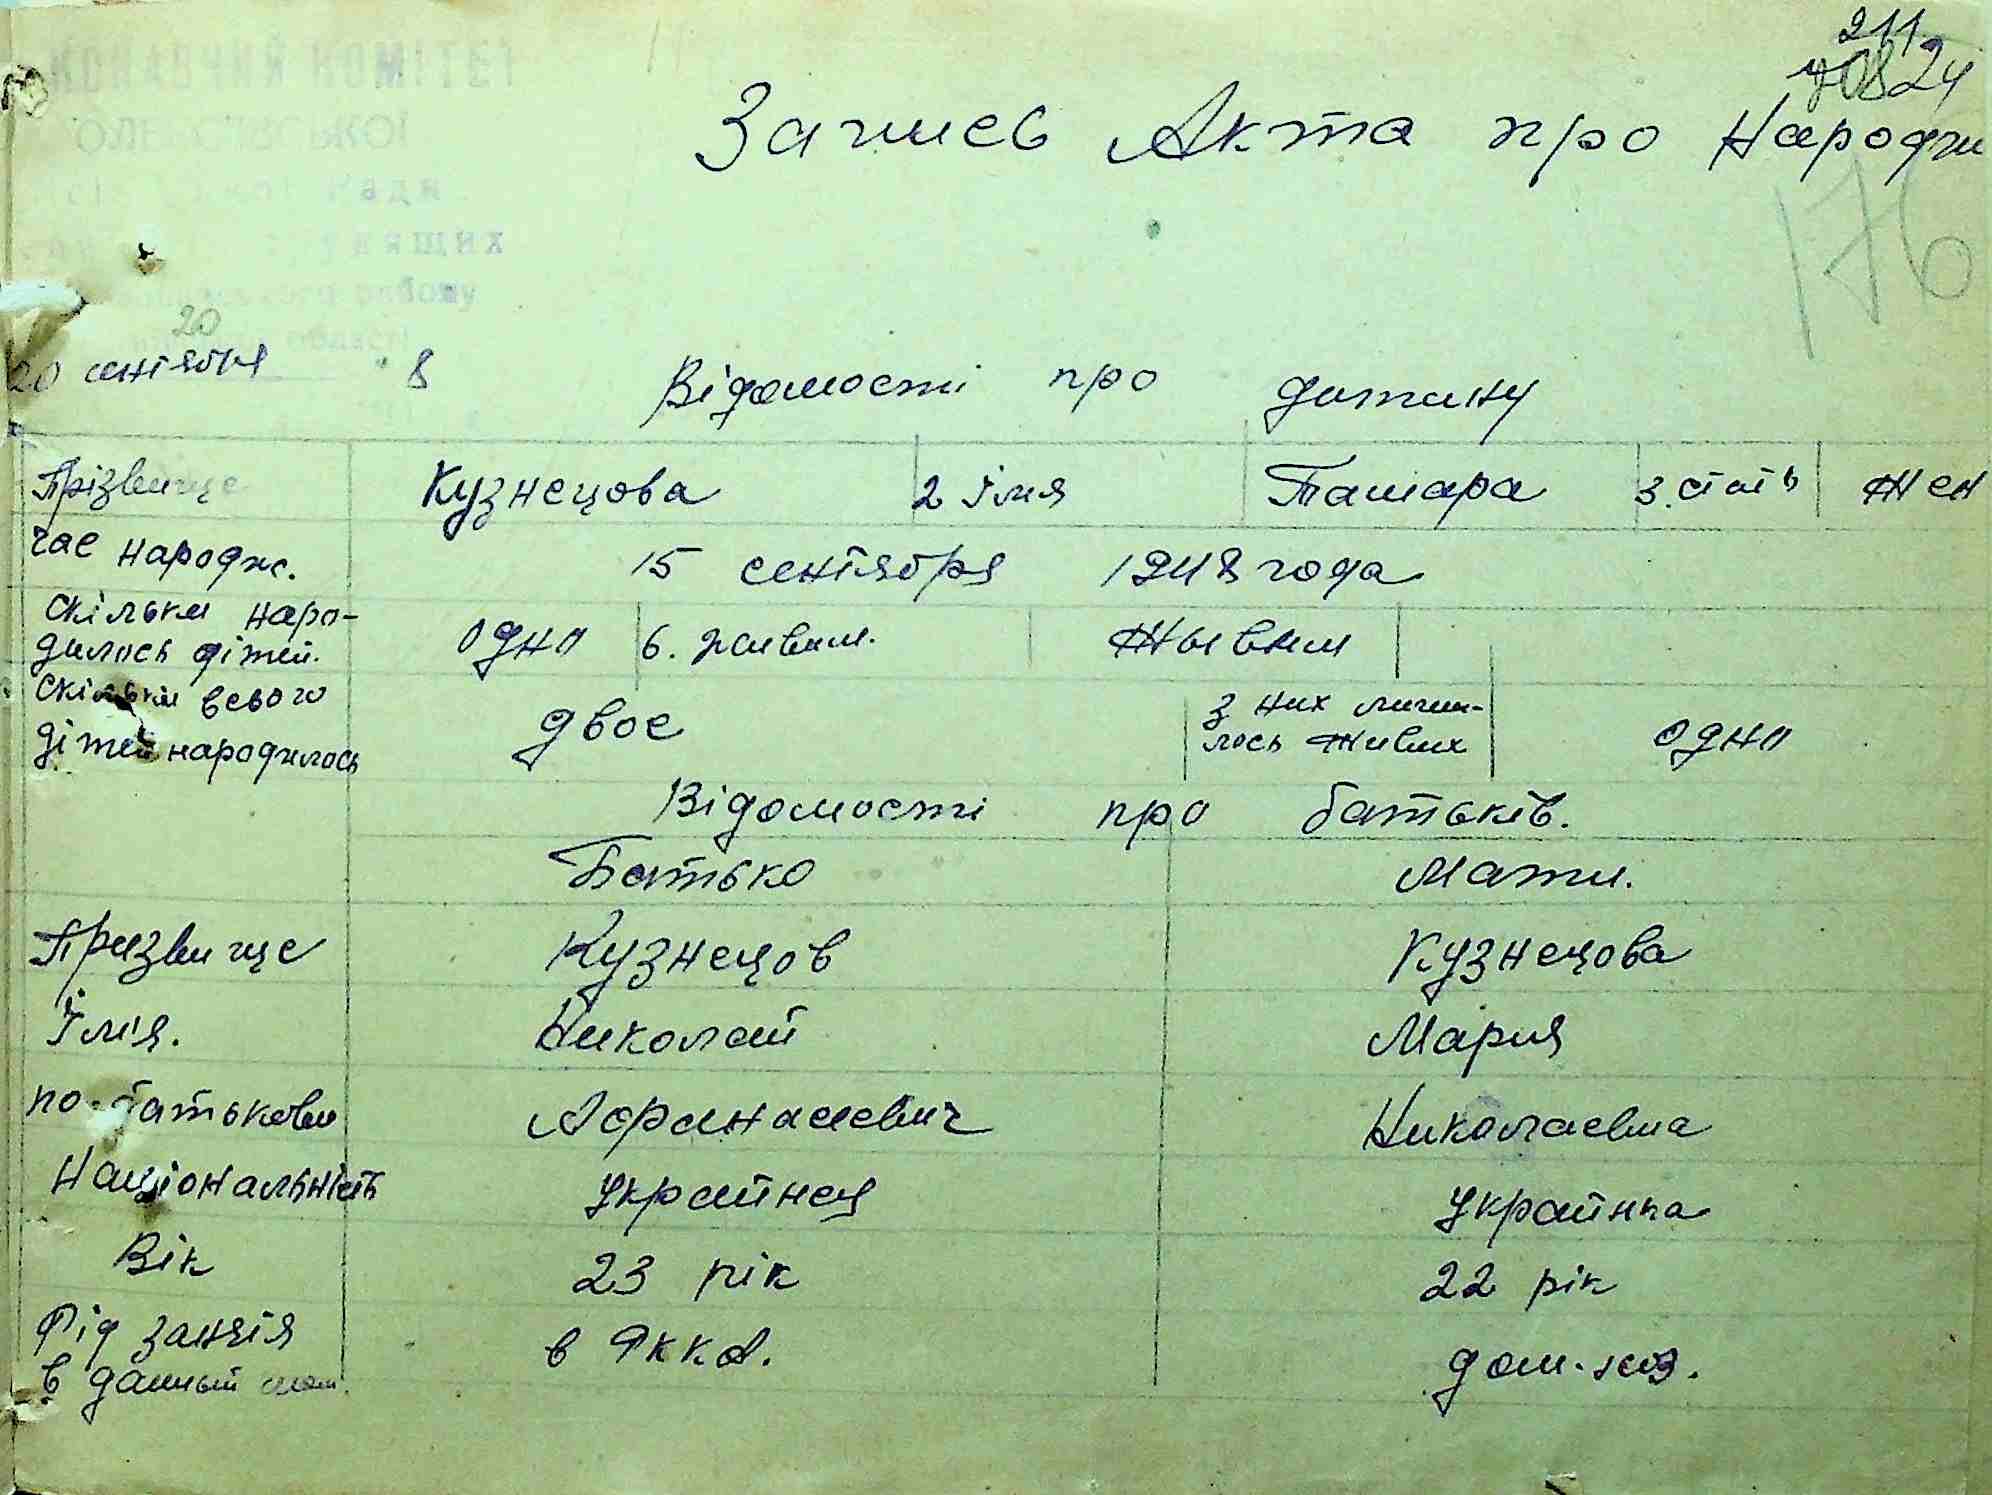 211
24
КОНАВЧИЙ КОМІТЕТ
Запись Акта про Народжн
176
Ради
щих
району
області
20
20 сентября 8
Відомості про дитину
Прізвище Кузнецова 2 Імя Тамара 3. стать жен
час народж. 15 сентября 1948 года
скільки наро-
дилось дітей. одно 6. живим. жывим
скільки всього
дітей народилось двое з них лиши-
лось живих одно
Відомості про батьків.
Батько Мати.
Призвище Кузнецов Кузнецова
Їмія. Николай Мария
по батькови Афанасиевич Николаевна
Національність Украинец Украинка
Вік 23 рік 22 рік
Рід занятія в РККА. дом. хоз.
в данный мом.